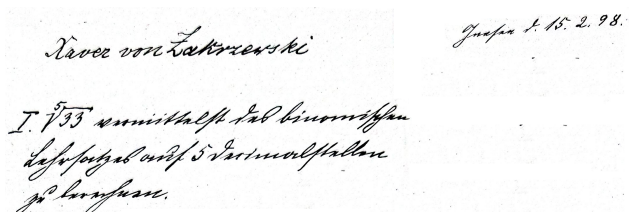 Xaver von Zakrzewski
Gnesen d. 15. 2. 98.
I. ⁵√33 vermittelst des binomischen
Lehrsatzes auf 5 Decimalstellen
zu berechnen.